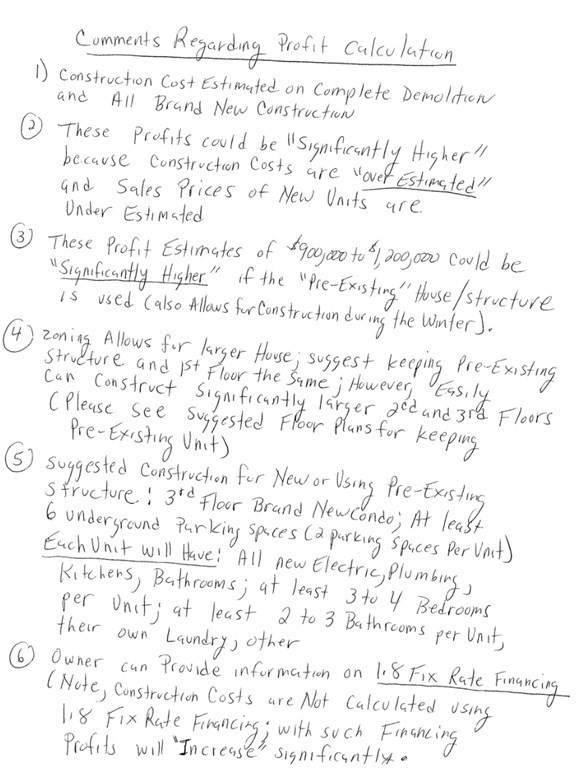 Comments Regarding Profit Calculation
1) Construction Cost Estimated on Complete Demolition
and All Brand New Construction
2) These Profits could be "Significantly Higher"
because Construction Costs are "over Estimated"
and Sales Prices of New Units are
Under Estimated
3) These Profit Estimates of $900,000 to $1,200,000 could be
"Significantly Higher" if the "Pre-Existing" House/structure
is used (also Allows for Construction during the Winter).
4) Zoning Allows for larger House; suggest keeping Pre-Existing
Structure and 1st Floor the Same; However, Easily
Can Construct Significantly larger 2cd and 3rd Floors
(Please see suggested Floor Plans for keeping
Pre-Existing Unit)
5) Suggested Construction for New or Using Pre-Existing
Structure: 3rd Floor Brand New Condo; At least
6 underground Parking Spaces (2 parking spaces Per Unit)
Each Unit will Have: All new Electric, Plumbing,
Kitchens, Bathrooms; at least 3 to 4 Bedrooms
per Unit; at least 2 to 3 Bathrooms per Unit,
their own Laundry, other
6) Owner can Provide information on 1.8 Fix Rate Financing
(Note, Construction Costs are Not Calculated using
1.8 Fix Rate Financing; with such Financing
Profits will "Increase" significantly.